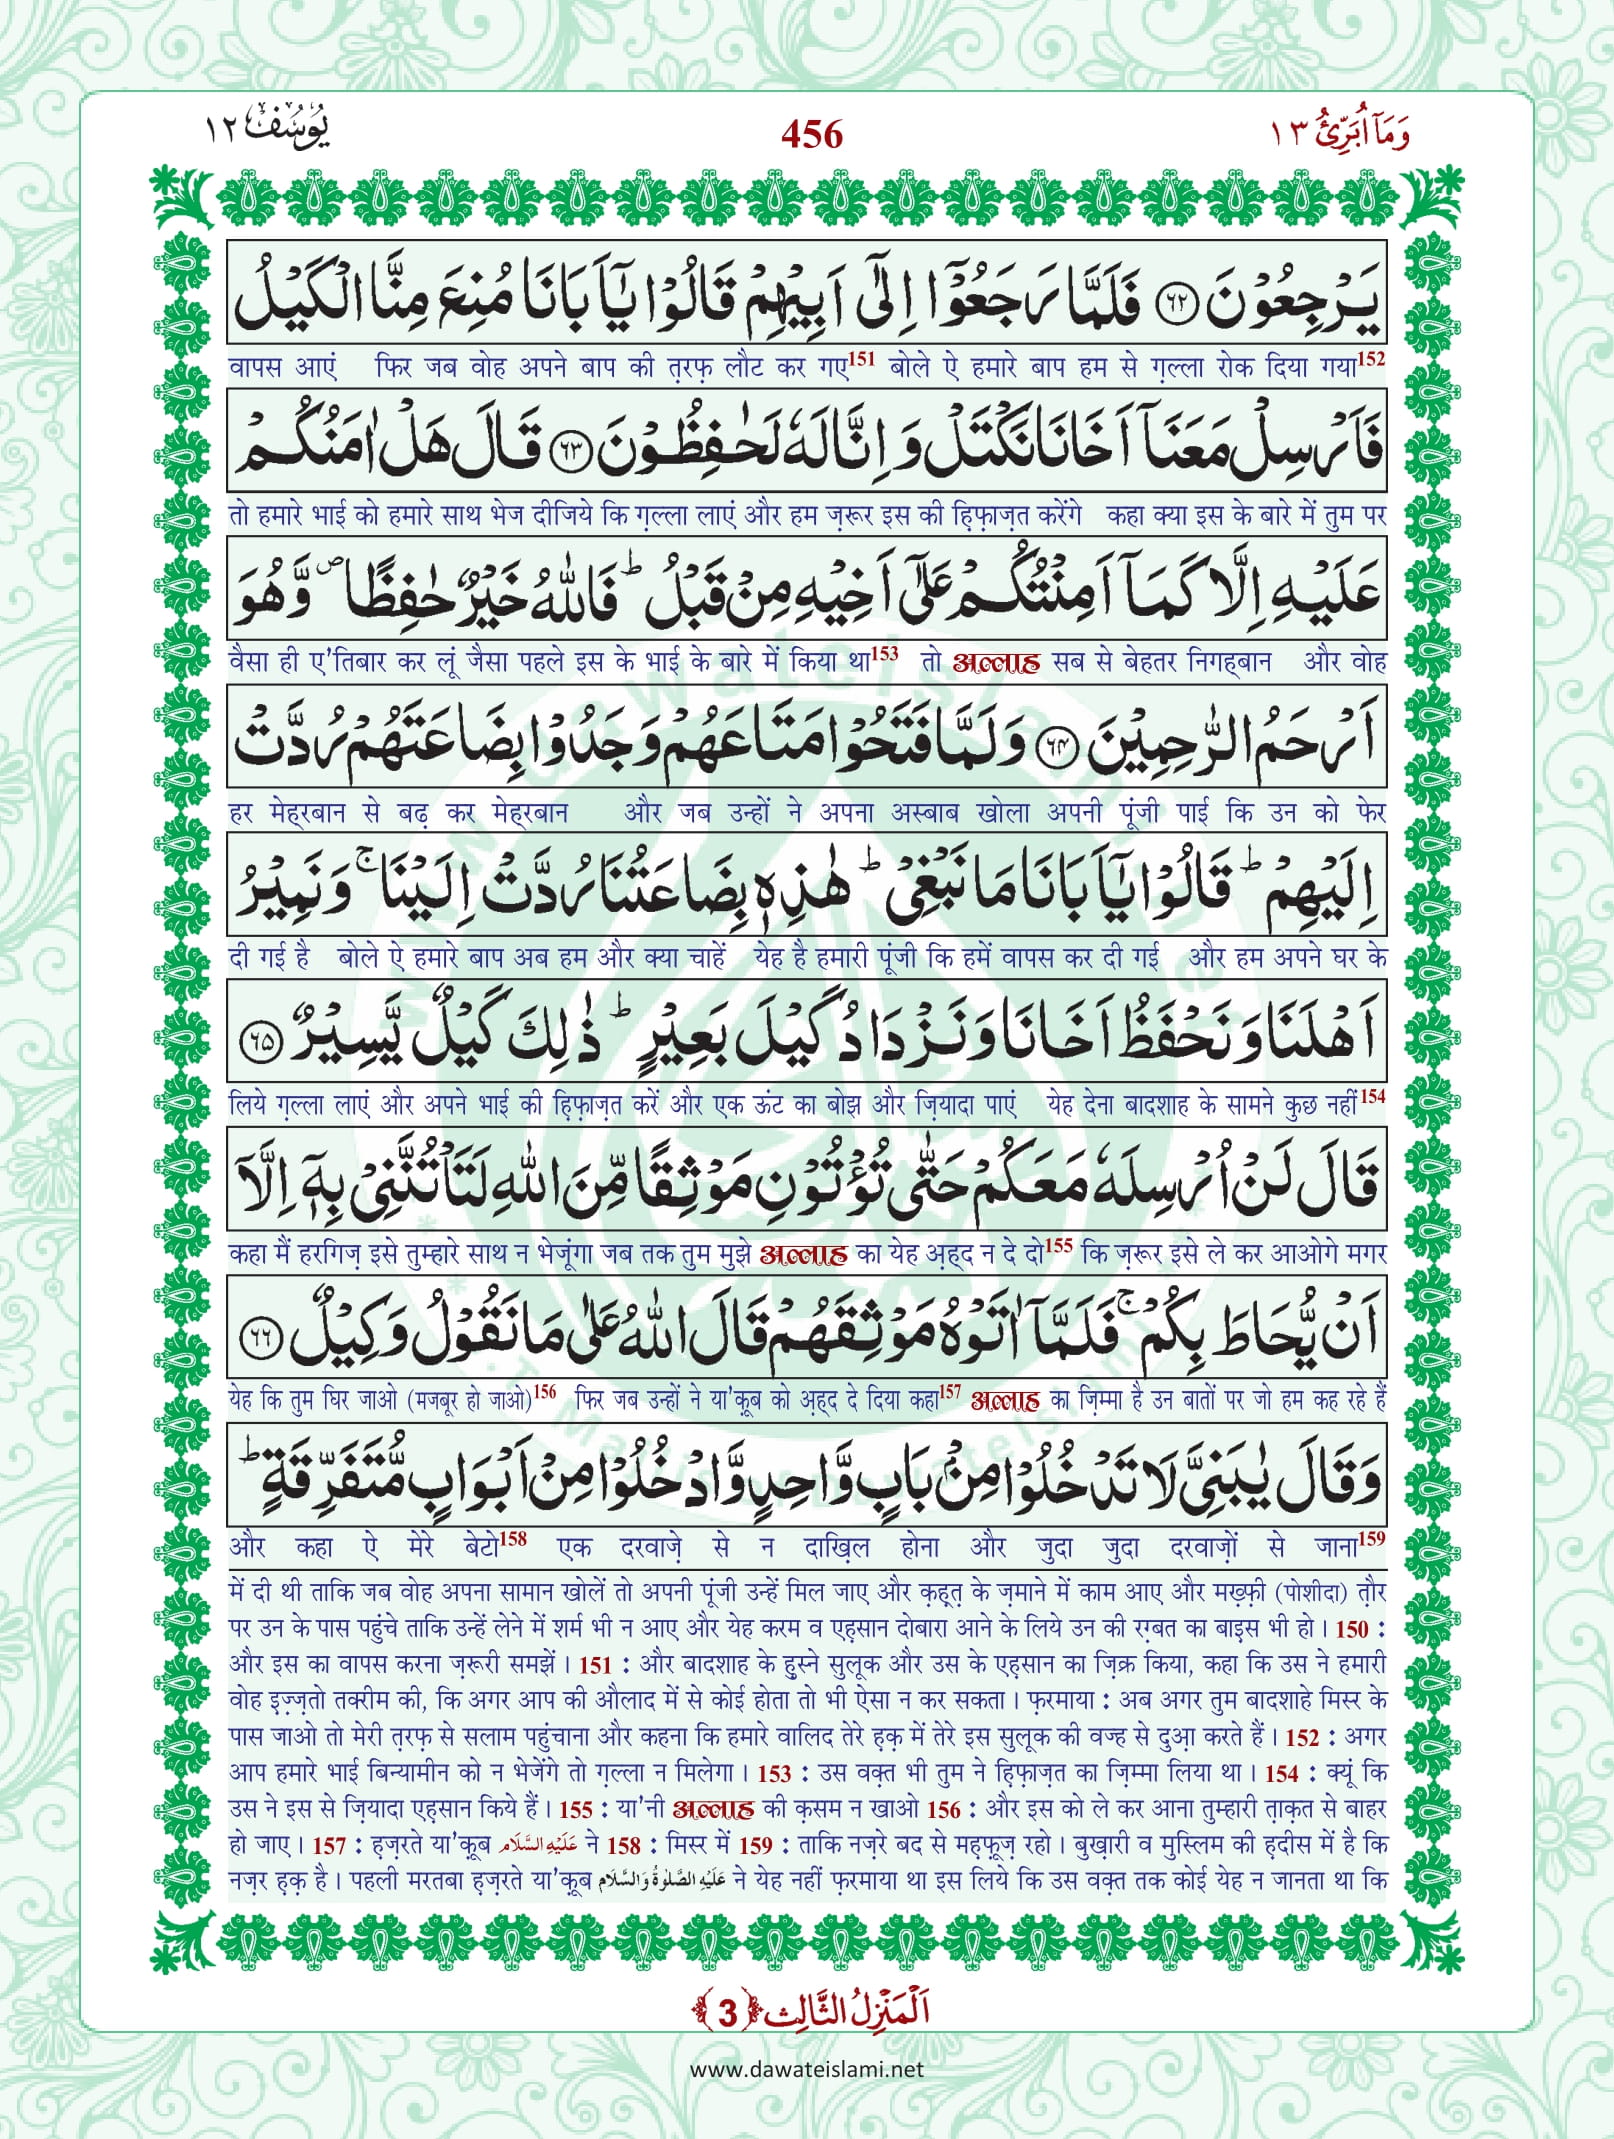 يُوسُف ١٢
456
وَمَآ اُبَرِّئُ ١٣
يَرْجِعُوْنَ ﴿۶۲﴾ فَلَمَّا رَجَعُوْۤا اِلٰۤى اَبِیْهِمْ قَالُوْا یٰۤاَبَانَا مُنِعَ مِنَّا الْكَیْلُ
वापस आएं फिर जब वोह अपने बाप की त़रफ़ लौट कर गए151 बोले ऐ हमारे बाप हम से ग़ल्ला रोक दिया गया152
فَاَرْسِلْ مَعَنَاۤ اَخَانَا نَكْتَلْ وَ اِنَّا لَهٗ لَحٰفِظُوْنَ ﴿۶۳﴾ قَالَ هَلْ اٰمَنُكُمْ
तो हमारे भाई को हमारे साथ भेज दीजिये कि ग़ल्ला लाएं और हम ज़रूर इस की ह़िफ़ाज़त करेंगे कहा क्या इस के बारे में तुम पर
عَلَیْهِ اِلَّا كَمَاۤ اَمِنْتُكُمْ عَلٰۤى اَخِیْهِ مِنْ قَبْلُؕ فَاللّٰهُ خَیْرٌ حٰفِظًا۪ وَّ هُوَ
वैसा ही ए'तिबार कर लूं जैसा पहले इस के भाई के बारे में किया था153 तो अल्लाह सब से बेहतर निगह्बान और वोह
اَرْحَمُ الرّٰحِمِیْنَ ﴿۶۴﴾ وَ لَمَّا فَتَحُوْا مَتَاعَهُمْ وَجَدُوْا بِضَاعَتَهُمْ رُدَّتْ
हर मेह्रबान से बढ़ कर मेह्रबान और जब उन्हों ने अपना अस्बाब खोला अपनी पूंजी पाई कि उन को फेर
اِلَیْهِمْؕ قَالُوْا یٰۤاَبَانَا مَا نَبْغِیْؕ هٰذِهٖ بِضَاعَتُنَا رُدَّتْ اِلَیْنَاۚ وَ نَمِیْرُ
दी गई है बोले ऐ हमारे बाप अब हम और क्या चाहें येह है हमारी पूंजी कि हमें वापस कर दी गई और हम अपने घर के
اَهْلَنَا وَ نَحْفَظُ اَخَانَا وَ نَزْدَادُ كَیْلَ بَعِیْرٍؕ ذٰلِكَ كَیْلٌ یَّسِیْرٌ ﴿۶۵﴾
लिये ग़ल्ला लाएं और अपने भाई की ह़िफ़ाज़त करें और एक ऊंट का बोझ और ज़ियादा पाएं येह देना बादशाह के सामने कुछ नहीं154
قَالَ لَنْ اُرْسِلَهٗ مَعَكُمْ حَتّٰى تُؤْتُوْنِ مَوْثِقًا مِّنَ اللّٰهِ لَتَاْتُنَّنِیْ بِهٖۤ اِلَّاۤ
कहा मैं हरगिज़ इसे तुम्हारे साथ न भेजूंगा जब तक तुम मुझे अल्लाह का येह अ़ह्द न दे दो155 कि ज़रूर इसे ले कर आओगे मगर
اَنْ یُّحَاطَ بِكُمْۚ فَلَمَّاۤ اٰتَوْهُ مَوْثِقَهُمْ قَالَ اللّٰهُ عَلٰى مَا نَقُوْلُ وَكِیْلٌ ﴿۶۶﴾
येह कि तुम घिर जाओ (मजबूर हो जाओ)156 फिर जब उन्हों ने या'क़ूब को अ़ह्द दे दिया कहा157 अल्लाह का ज़िम्मा है उन बातों पर जो हम कह रहे हैं
وَ قَالَ یٰبَنِیَّ لَا تَدْخُلُوْا مِنْۢ بَابٍ وَّاحِدٍ وَّ ادْخُلُوْا مِنْ اَبْوَابٍ مُّتَفَرِّقَةٍؕ
और कहा ऐ मेरे बेटो158 एक दरवाज़े से न दाख़िल होना और जुदा जुदा दरवाज़ों से जाना159
में दी थी ताकि जब वोह अपना सामान खोलें तो अपनी पूंजी उन्हें मिल जाए और क़ह़त़ के ज़माने में काम आए और मख़्फ़ी (पोशीदा) त़ौर
पर उन के पास पहुंचे ताकि उन्हें लेने में शर्म भी न आए और येह करम व एह़सान दोबारा आने के लिये उन की रग़्बत का बाइस भी हो। 150 :
और इस का वापस करना ज़रूरी समझें। 151 : और बादशाह के ह़ुस्ने सुलूक और उस के एह़सान का ज़िक्र किया, कहा कि उस ने हमारी
वोह इज़्ज़तो तक्रीम की, कि अगर आप की औलाद में से कोई होता तो भी ऐसा न कर सकता। फ़रमाया : अब अगर तुम बादशाहे मिस्र के
पास जाओ तो मेरी त़रफ़ से सलाम पहुंचाना और कहना कि हमारे वालिद तेरे ह़क़ में तेरे इस सुलूक की वज्ह से दुआ़ करते हैं। 152 : अगर
आप हमारे भाई बिन्यामीन को न भेजेंगे तो ग़ल्ला न मिलेगा। 153 : उस वक़्त भी तुम ने ह़िफ़ाज़त का ज़िम्मा लिया था। 154 : क्यूं कि
उस ने इस से ज़ियादा एह़सान किये हैं। 155 : या'नी अल्लाह की क़सम न खाओ 156 : और इस को ले कर आना तुम्हारी त़ाक़त से बाहर
हो जाए। 157 : ह़ज़रते या'क़ूब عَلَيْهِ السَّلَام ने 158 : मिस्र में 159 : ताकि नज़रे बद से मह़फ़ूज़ रहो। बुख़ारी व मुस्लिम की ह़दीस में है कि
नज़र ह़क़ है। पहली मरतबा ह़ज़रते या'क़ूब عَلَيْهِ الصَّلٰوةُ وَالسَّلَام ने येह नहीं फ़रमाया था इस लिये कि उस वक़्त तक कोई येह न जानता था कि
اَلْمَنْزِلُ الثَّالِث ﴿3﴾
www.dawateislami.net